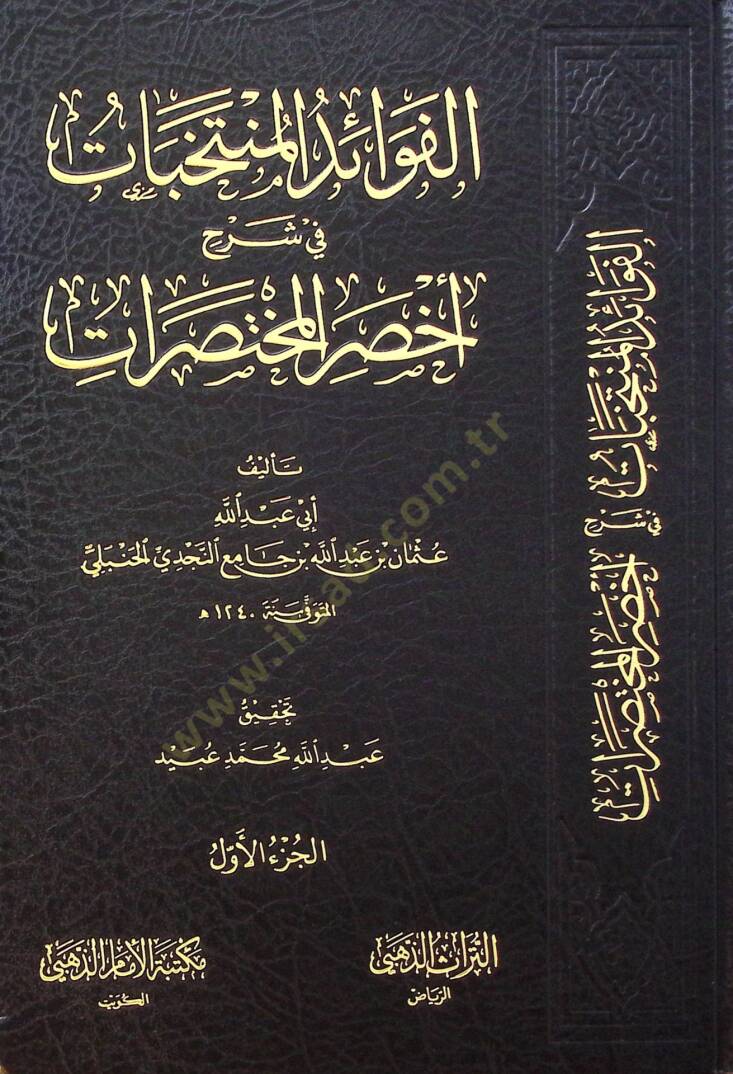 الفَوَائِدُ المُنْتَخَبَاتُ
فِي شَرْحِ
أَخْصَرِ المُخْتَصَرَاتِ
تَأليْفُ
أبي عَبْدِ اللَّهِ
عُثْمَان بْن عَبْدِ اللَّه بْن جَامِع النَّجْدِيّ الحَنْبَلِيّ
المتَوفّى سَنَة ١٢٤٠ هـ
تَحْقِيْقُ
عَبْدِ اللَّه مُحَمَّد عُبَيْد
الجُزْءُ الأَوَّلُ
التُّرَاثُ الذَّهَبِيّ
الرّيَاضْ
مَكتَبَة الإمَام الذّهَبِيّ
الكوَيت
الفَوَائِدُ المُنْتَخَبَاتُ فِي شَرْحِ أَخْصَرِ المُخْتَصَرَاتِ